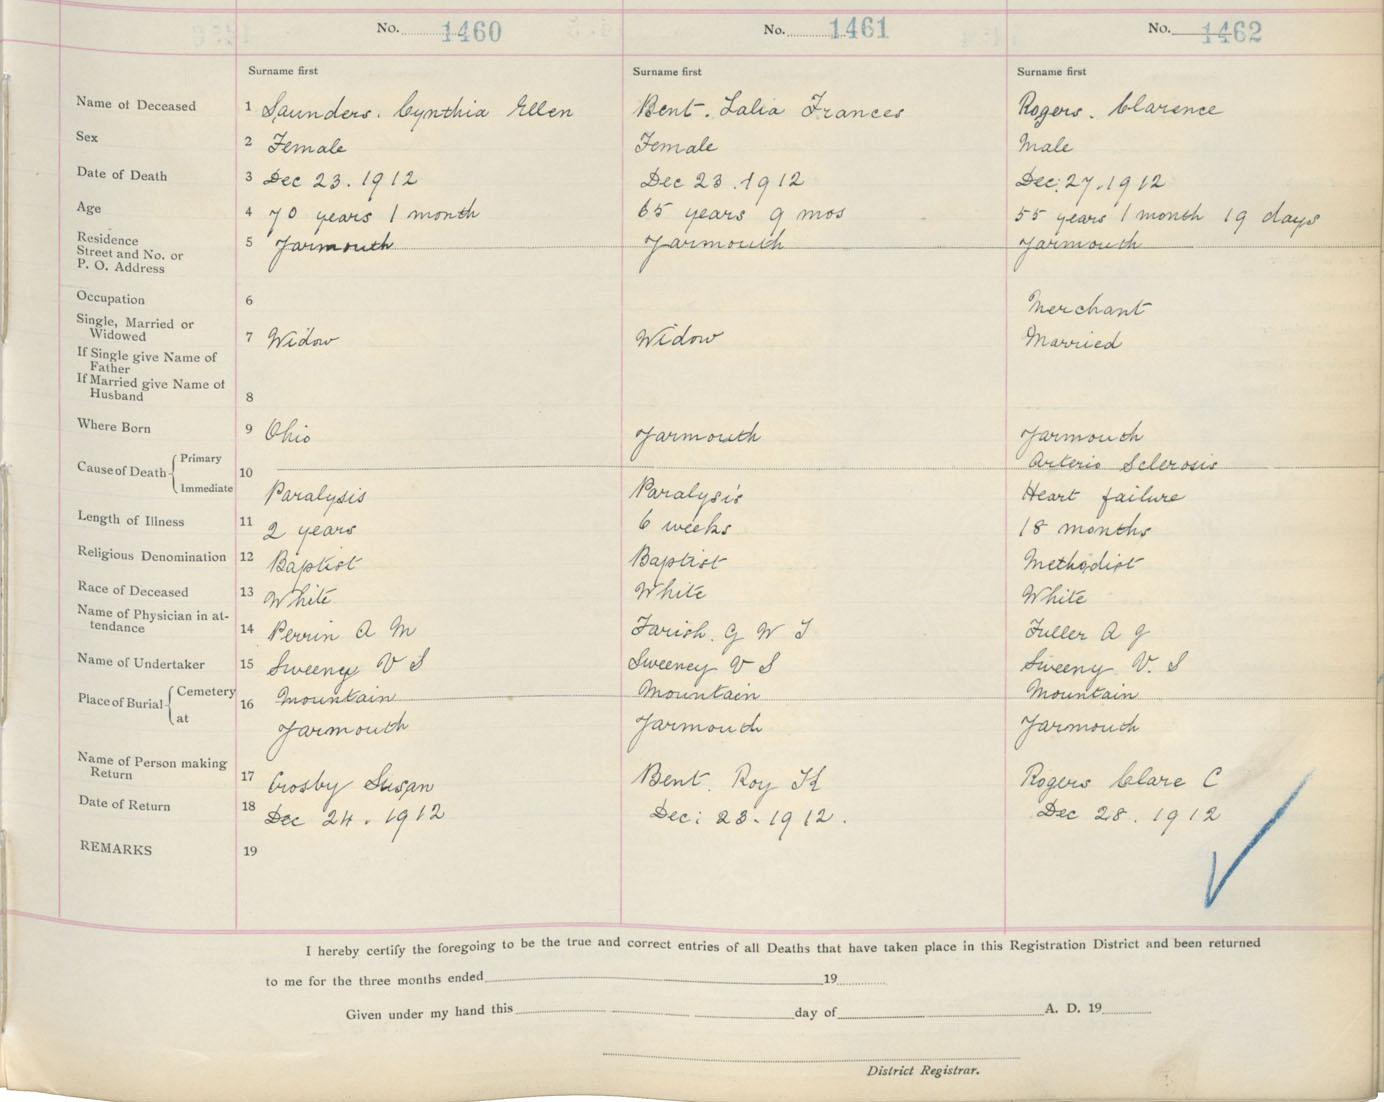 No. 1460 No. 1461 No. 1462
Surname first Surname first Surname first
Name of Deceased 1 Saunders. Cynthia Ellen Bent. Lalia Frances Rogers. Clarence
Sex 2 Female Female Male
Date of Death 3 Dec 23. 1912 Dec 23. 1912 Dec: 27. 1912
Age 4 70 years 1 month 65 years 9 mos 55 years 1 month 19 days
Residence
Street and No. or
P. O. Address
5 Yarmouth Yarmouth Yarmouth
Occupation 6 Merchant
Single, Married or
Widowed
7 Widow Widow Married
If Single give Name of
Father
If Married give Name of
Husband
8
Where Born 9 Ohio Yarmouth Yarmouth
Cause of Death Primary 10 Arterio Sclerosis
Immediate Paralysis Paralysis Heart failure
Length of Illness 11 2 years 6 weeks 18 months
Religious Denomination 12 Baptist Baptist Methodist
Race of Deceased 13 White White White
Name of Physician in at-
tendance
14 Perrin A M Farish. G W T Fuller A J
Name of Undertaker 15 Sweeney V S Sweeney V S Sweeny V. S
Place of Burial Cemetery 16 Mountain Mountain Mountain
at Yarmouth Yarmouth Yarmouth
Name of Person making
Return
17 Crosby Susan Bent. Roy K Rogers Clare C
Date of Return 18 Dec 24. 1912 Dec: 23. 1912. Dec 28. 1912
REMARKS 19
I hereby certify the foregoing to be the true and correct entries of all Deaths that have taken place in this Registration District and been returned
to me for the three months ended 19
Given under my hand this day of A. D. 19
District Registrar.